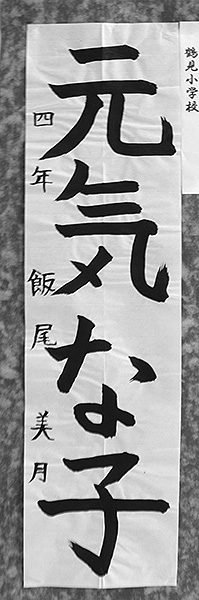 鶴見小学校
元気な子
四年 飯尾美月